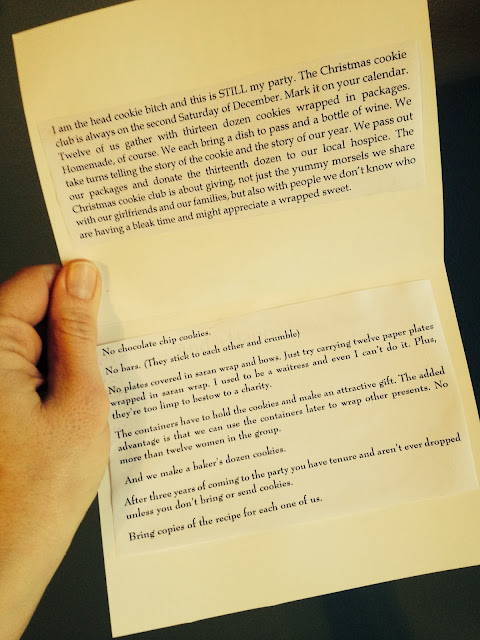 I am the head cookie bitch and this is STILL my party. The Christmas cookie
club is always on the second Saturday of December. Mark it on your calendar.
Twelve of us gather with thirteen dozen cookies wrapped in packages.
Homemade, of course. We each bring a dish to pass and a bottle of wine. We
take turns telling the story of the cookie and the story of our year. We pass out
our packages and donate the thirteenth dozen to our local hospice. The
Christmas cookie club is about giving, not just the yummy morsels we share
with our girlfriends and our families, but also with people we don't know who
are having a bleak time and might appreciate a wrapped sweet.
No chocolate chip cookies.
No bars. (They stick to each other and crumble)
No plates covered in saran wrap and bows. Just try carrying twelve paper plates
wrapped in saran wrap. I used to be a waitress and even I can't do it. Plus,
they're too limp to bestow to a charity.
The containers have to hold the cookies and make an attractive gift. The added
advantage is that we can use the containers later to wrap other presents. No
more than twelve women in the group.
And we make a baker's dozen cookies.
After three years of coming to the party you have tenure and aren't ever dropped
unless you don't bring or send cookies.
Bring copies of the recipe for each one of us.